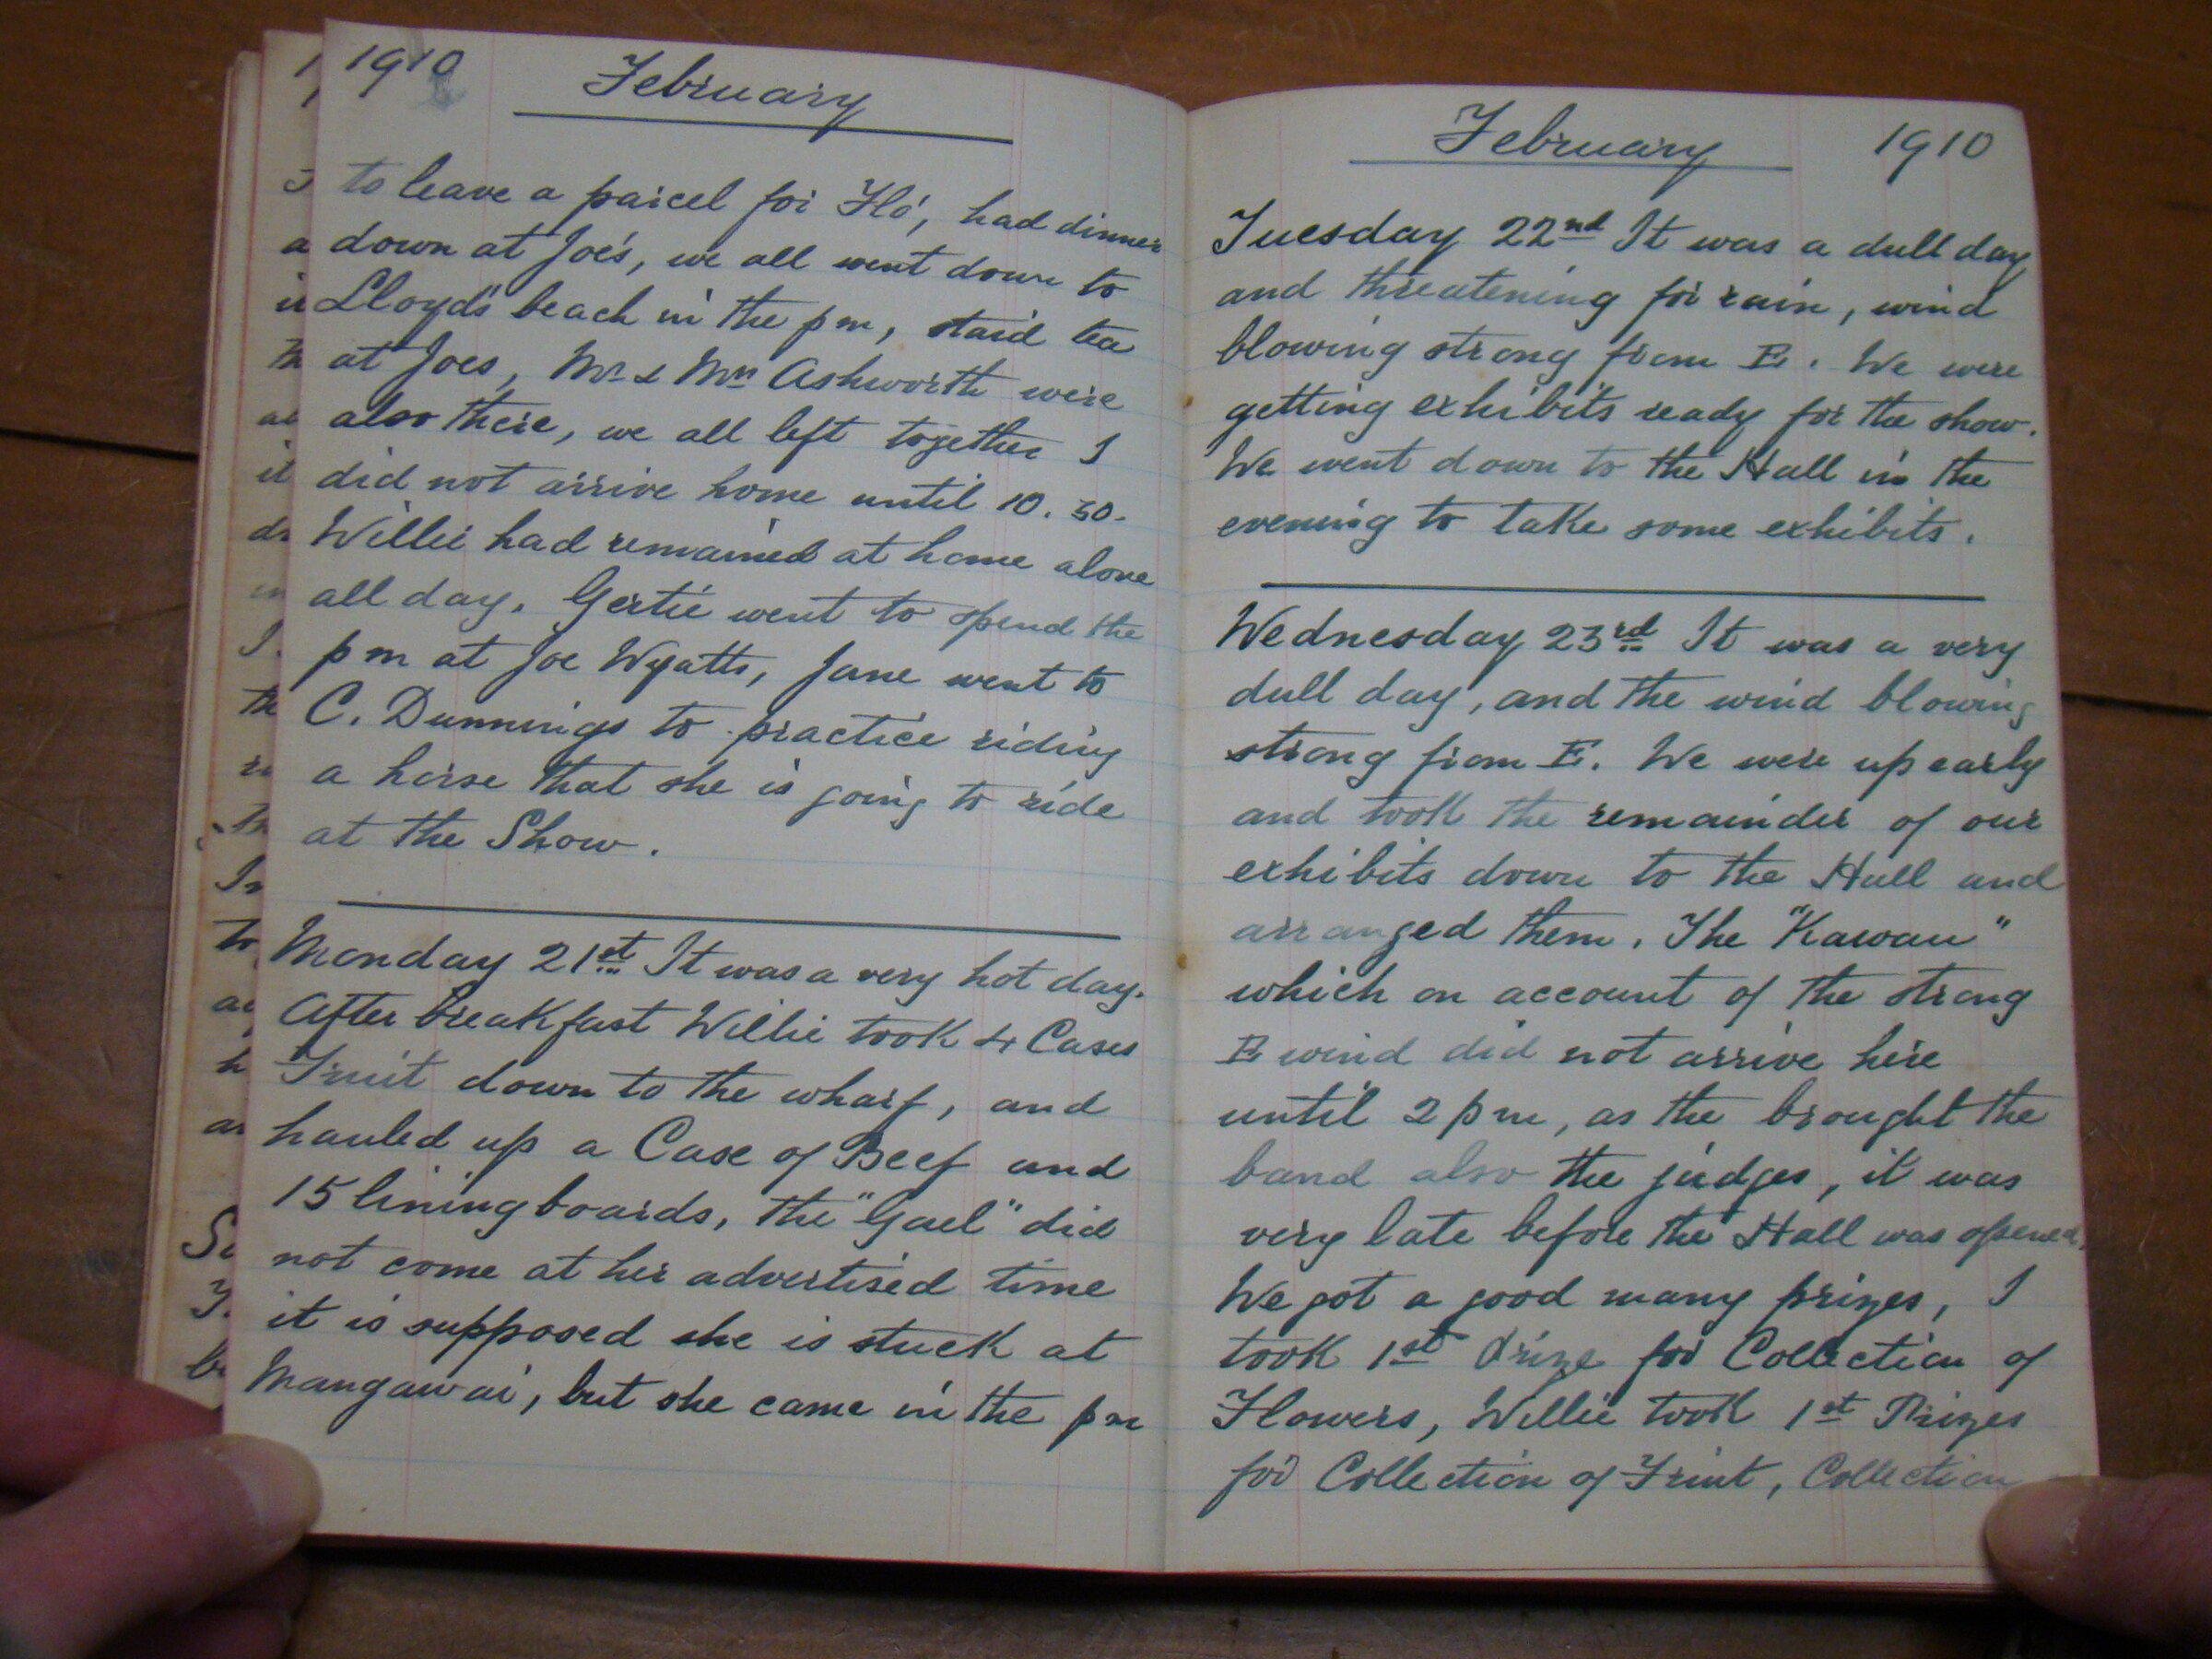 1910
February
to leave a parcel for Flo', had dinner
down at Joe's, we all went down to
Lloyd's beach in the pm, staid tea
at Joes, Mr & Mrs Ashworth were
also there, we all left together I
did not arrive home until 10.30.
Willie had remained at home alone
all day. Gertie went to spend the
pm at Joe Wyatts, Jane went to
C. Dunnings to practice riding
a horse that she is going to ride
at the Show.
Monday 21st It was a very hot day.
After breakfast Willie took 4 Cases
Fruit down to the wharf, and
hauled up a Case of Beef and
15 lining boards, the "Gael" did
not come at her advertised time
it is supposed she is stuck at
Mangawai, but she came in the pm
February 1910
Tuesday 22nd It was a dull day
and threatening for rain, wind
blowing strong from E. We were
getting exhibits ready for the show.
We went down to the Hall in the
evening to take some exhibits.
Wednesday 23rd It was a very
dull day, and the wind blowing
strong from E. We were up early
and took the remainder of our
exhibits down to the Hall and
arranged them. The "Kawau"
which on account of the strong
E wind did not arrive here
until 2 pm, as the brought the
band also the judges, it was
very late before the Hall was opened.
We got a good many prizes, I
took 1st Prize for Collection of
Flowers, Willie took 1st Prizes
for Collection of Fruit, Collection